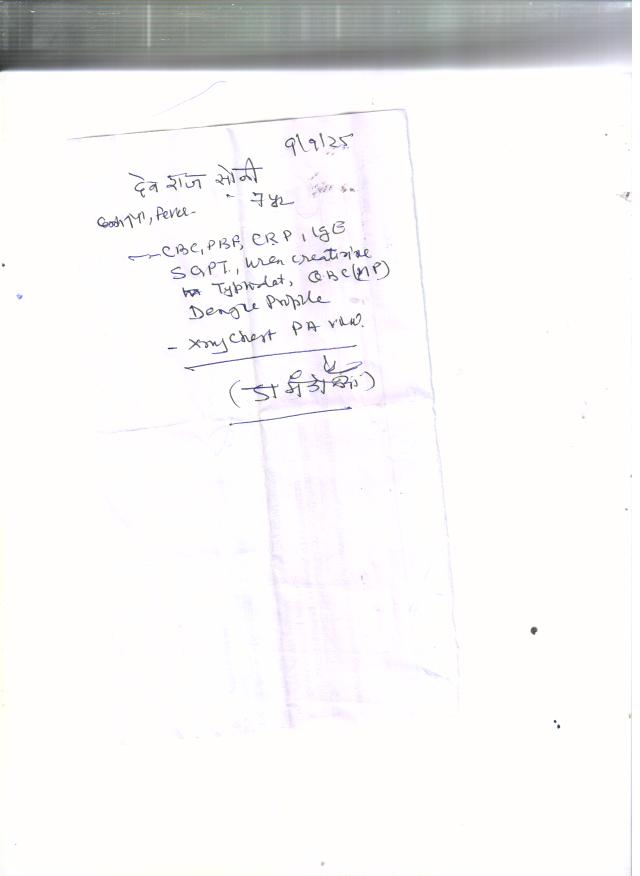 9/9/25
देव राज सोनी
7 yr
Cough, Fever
CBC, PBF, CRP, IgE
SGPT, Urea creatinine
Typhidot, QBC (MP)
Dengue Profile
- Xray Chest PA view.